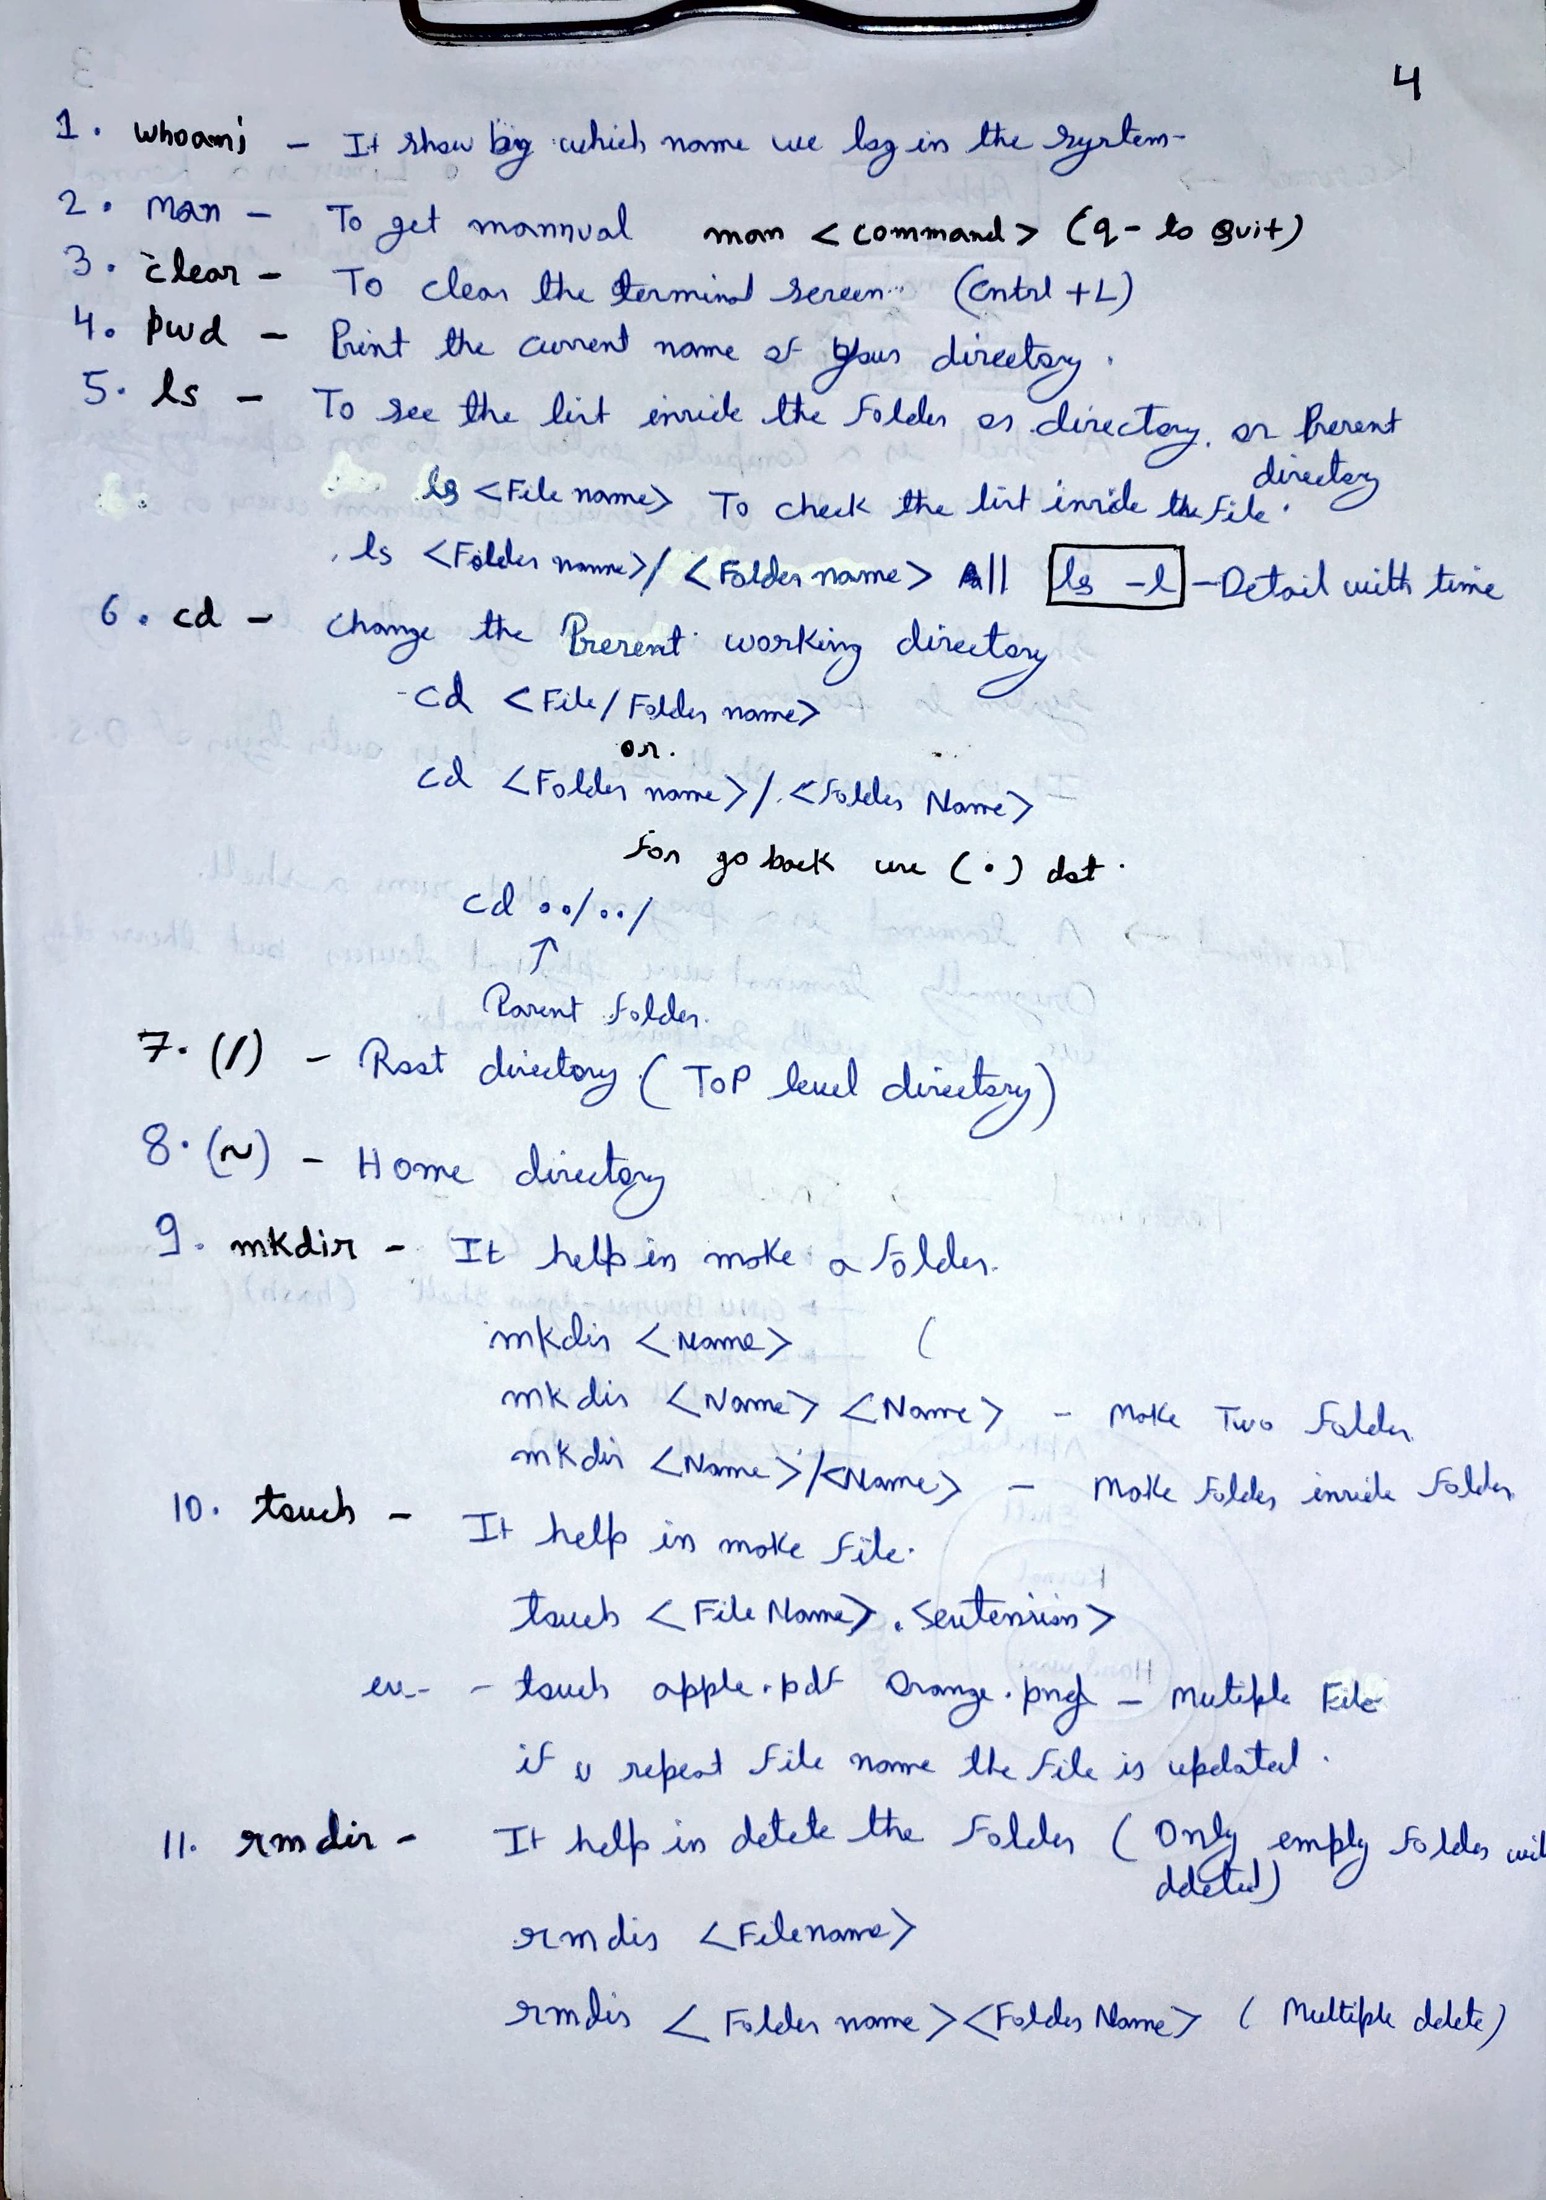 4
1. whoami - It show by which name we log in the system-
2. man - To get mannual man <command> (q - to quit)
3. clear - To clear the terminal screen (Cntrl + L)
4. pwd - Print the current name of your directory.
5. ls - To see the list inside the folder or directory. or Present directory
ls <File name> To check the list inside the file.
ls <Folder name>/<Folder name> All ls -l - Detail with time
6. cd - change the Present working directory
- cd <File/Folder name>
or.
cd <Folder name>/<Folder Name>
for go back use (.) dot.
cd ../../
↑
Parent folder.
7. (/) - Root directory (ToP level directory)
8. (~) - Home directory
9. mkdir - It help in make a folder.
mkdir <Name> (
mkdir <Name> <Name> - Make Two folder
mkdir <Name>/<Name> - Make folder inside folder
10. touch - It help in make file.
touch <File Name>.<extension>
ex- - touch apple.pdf Orange.png - mutiple File
if u repeat file name the file is updated.
11. rmdir - It help in detete the folder (Only empty folder will deleted)
rmdir <Filename>
rmdir <Folder name><Folder Name> (Multiple delete)